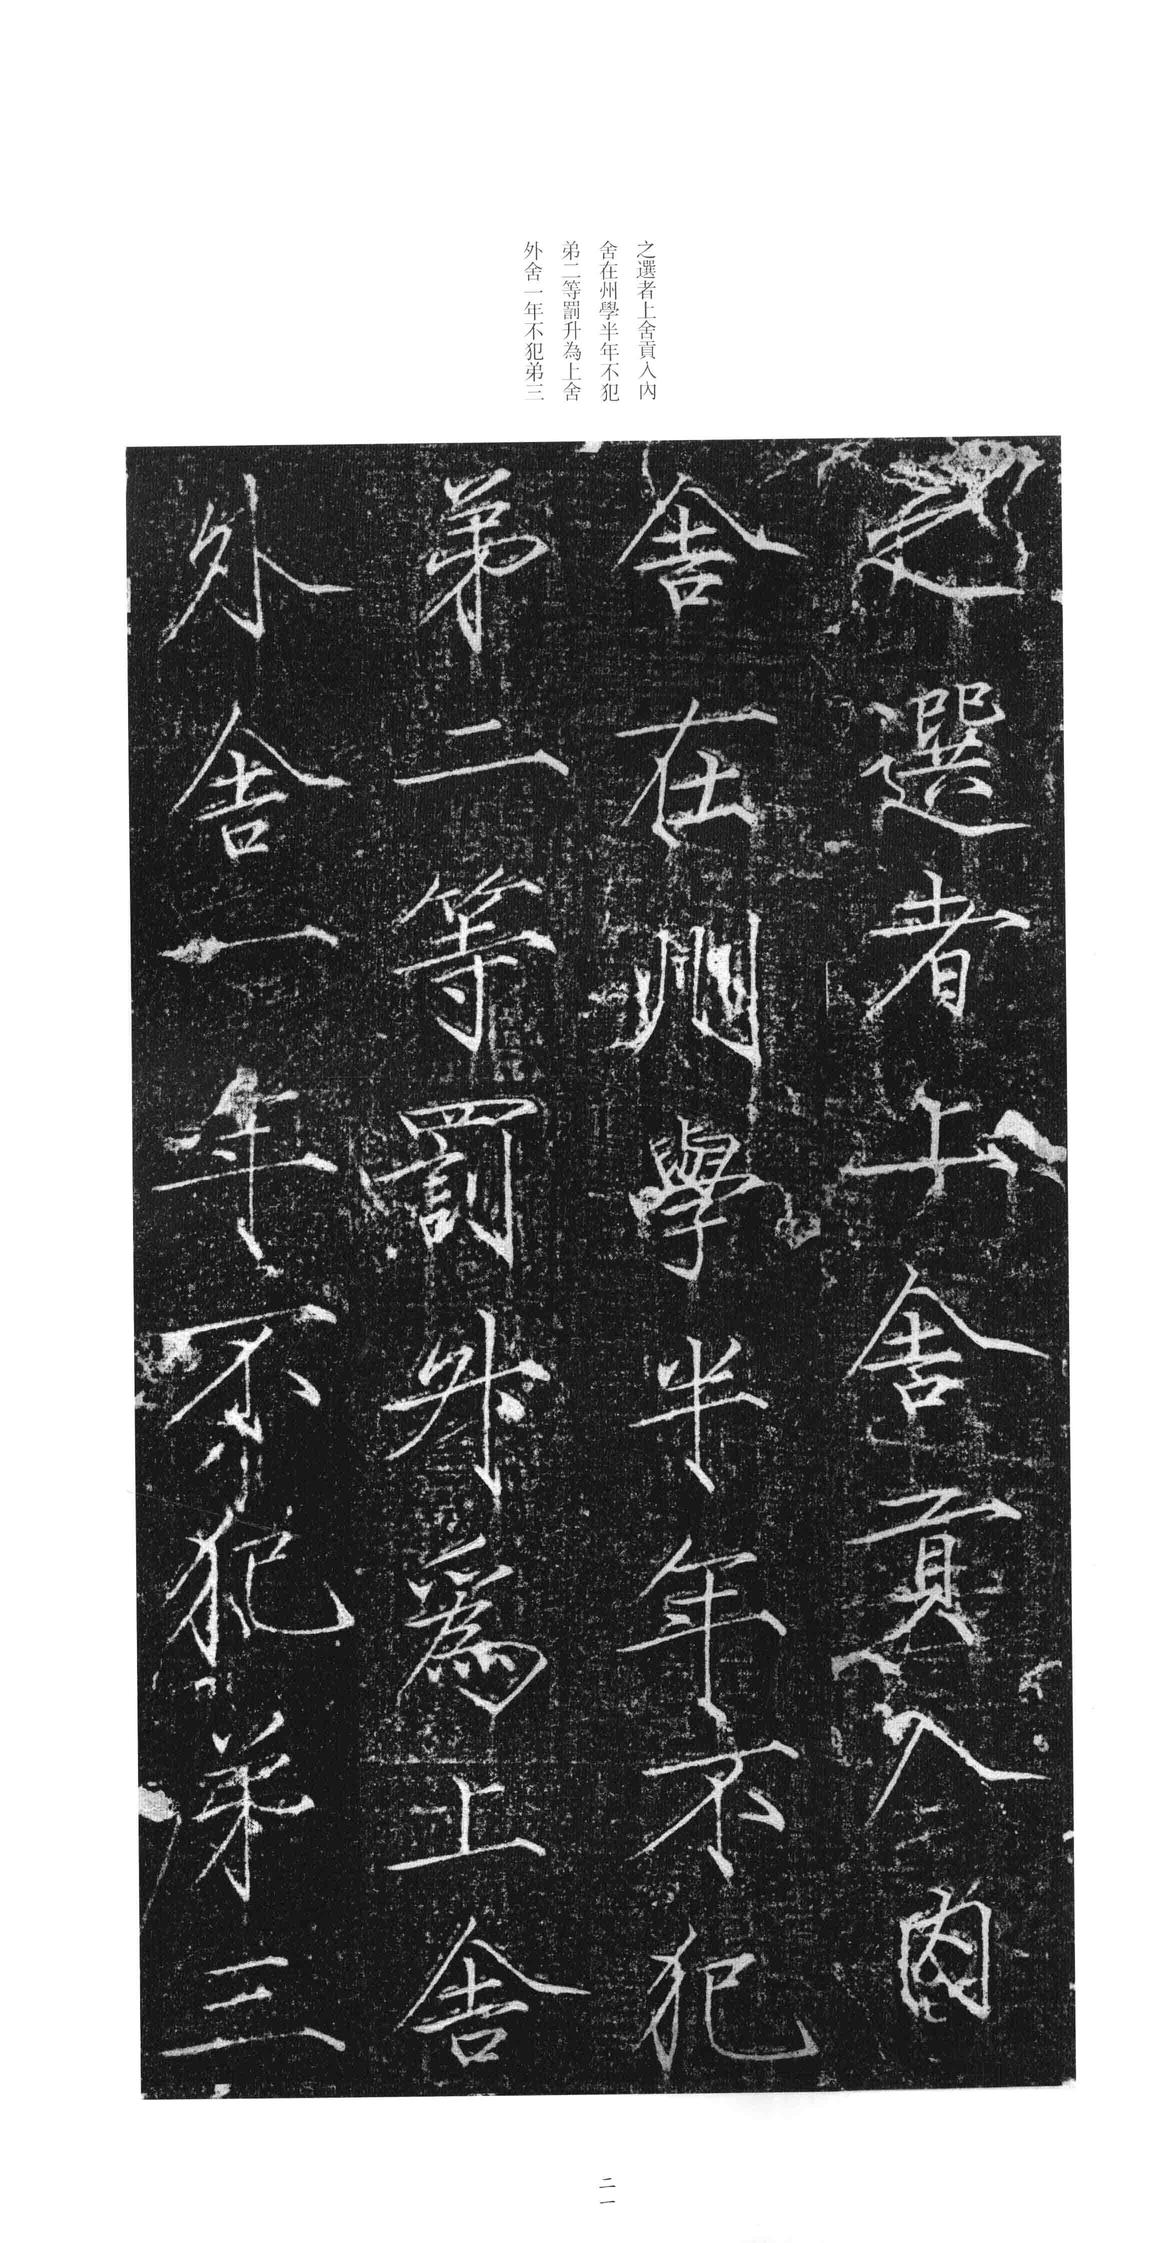 之選者上舍貢入內
舍在州學半年不犯
弟二等罰升為上舍
外舍一年不犯弟三
之選者上舍貢入內
舍在州學半年不犯
弟二等罰升為上舍
外舍一年不犯弟三
二一